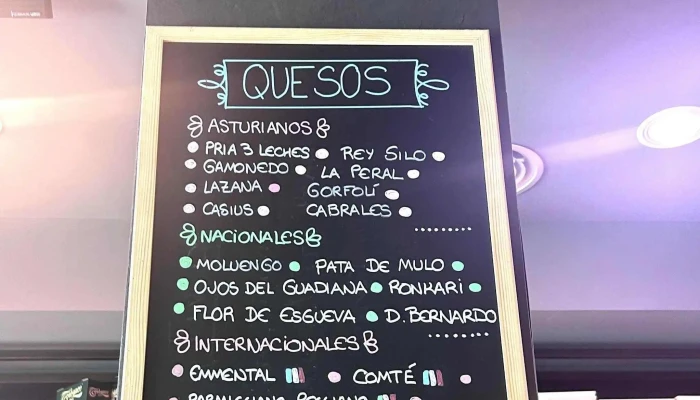 QUESOS
ASTURIANOS
PRIA 3 LECHES REY SILO
GAMONEDO LA PERAL
LAZANA GORFOLÍ
CASIUS CABRALES
NACIONALES
MOLUENGO PATA DE MULO
OJOS DEL GUADIANA RONKARI
FLOR DE ESGUEVA D. BERNARDO
INTERNACIONALES
EMMENTAL COMTÉ
PARMIGIANO REGGIANO